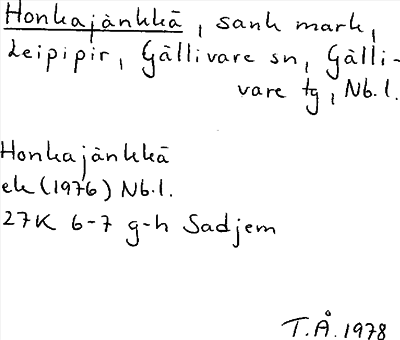 Honkajänkkä, sank mark,
Leipipir, Gällivare sn, Gälli-
vare tg, Nb.l.
Honkajänkkä
ek (1976) Nb.l.
27K 6-7 g-h Sadjem
T.Å. 1978